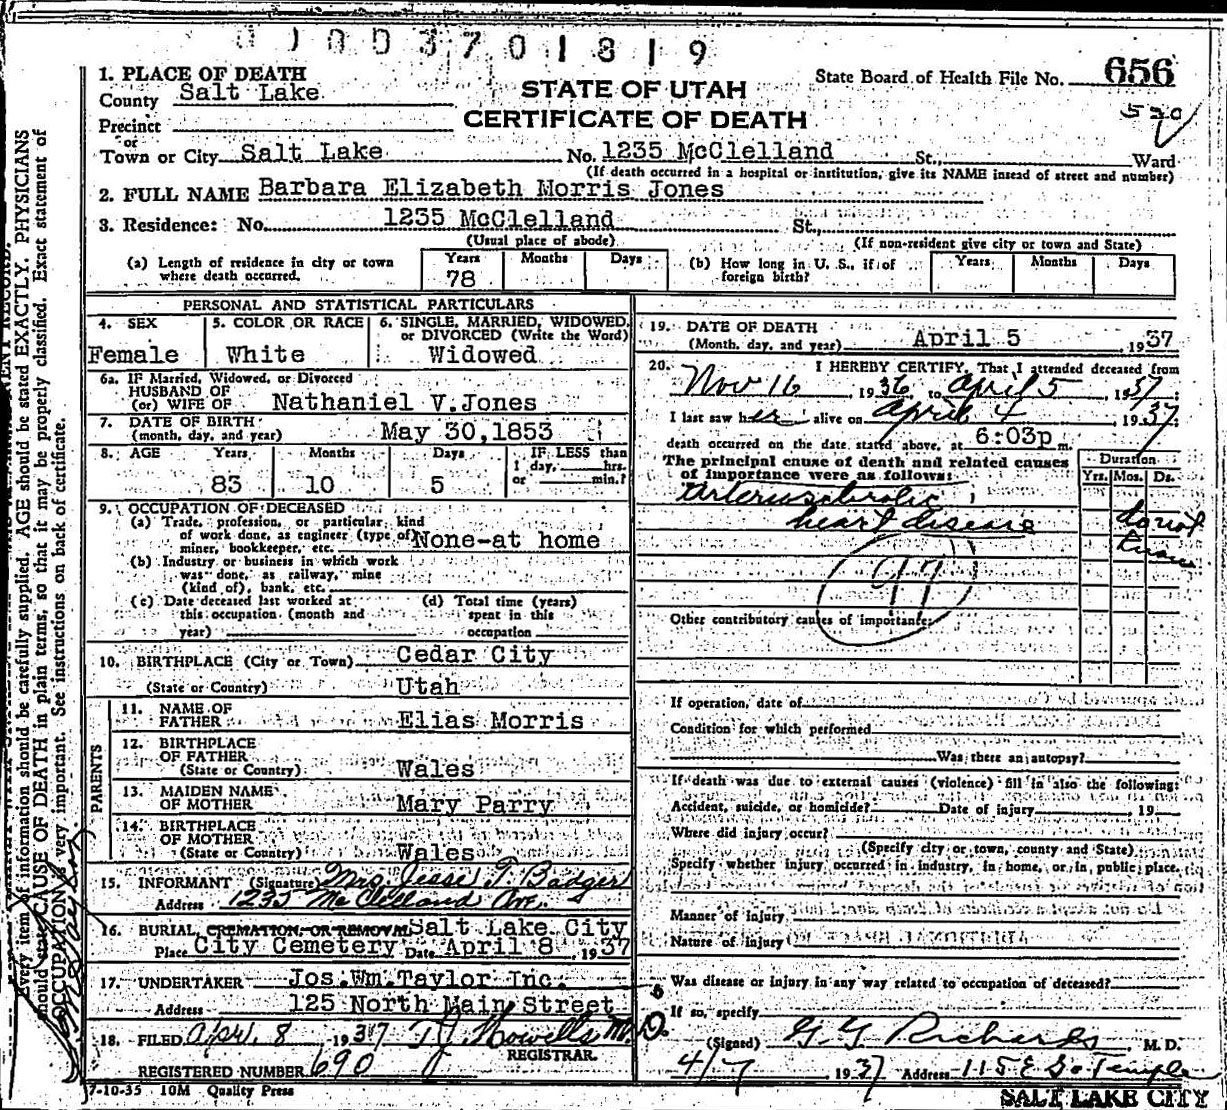 3701819
1. PLACE OF DEATH
County Salt Lake
Precinct
or
Town or City Salt Lake No. 1235 McClelland St., Ward
(If death occurred in a hospital or institution, give its NAME insead of street and number)
STATE OF UTAH
CERTIFICATE OF DEATH
State Board of Health File No. 656
520
2. FULL NAME Barbara Elizabeth Morris Jones
3. Residence: No. 1235 McClelland St.,
(Usual place of abode)
(If non-resident give city or town and State)
(a) Length of residence in city or town where death occurred.
Years Months Days
78
(b) How long in U. S., if of foreign birth?
Years Months Days
PERSONAL AND STATISTICAL PARTICULARS
4. SEX
Female
5. COLOR OR RACE
White
6. SINGLE, MARRIED, WIDOWED, or DIVORCED (Write the Word)
Widowed
6a. IF Married, Widowed, or Divorced
HUSBAND OF
(or) WIFE OF Nathaniel V.Jones
7. DATE OF BIRTH
(month, day, and year) May 30,1853
8. AGE Years Months Days IF LESS than
1 day, hrs.
or min.?
83 10 5
9. OCCUPATION OF DECEASED
(a) Trade, profession, or particular kind
of work done, as engineer (type of)
miner, bookkeeper, etc. None-at home
(b) Industry or business in which work
was done, as railway, mine
(kind of), bank, etc.
(c) Date deceased last worked at
this occupation (month and
year)
(d) Total time (years)
spent in this
occupation
10. BIRTHPLACE (City or Town) Cedar City
(State or Country) Utah
PARENTS
11. NAME OF
FATHER Elias Morris
12. BIRTHPLACE
OF FATHER
(State or Country) Wales
13. MAIDEN NAME
OF MOTHER Mary Parry
14. BIRTHPLACE
OF MOTHER
(State or Country) Wales
15. INFORMANT (Signature) Mrs. Jesse T. Badger
Address 1235 McClelland Ave.
16. BURIAL, CREMATION, OR REMOVAL Salt Lake City
Place City Cemetery Date April 8, 1937
17. UNDERTAKER Jos.Wm.Taylor Inc.
Address 125 North Main Street
18. FILED Apr. 8 1937 T.J. Howells M.D.
REGISTRAR.
REGISTERED NUMBER 690
7-10-35 10M Quality Press
19. DATE OF DEATH
(Month, day, and year) April 5 1937
20. I HEREBY CERTIFY, That I attended deceased from
Nov 16 1936 to April 5 1937;
I last saw her alive on April 4 1937;
death occurred on the date stated above, at 6:03p m.
The principal cause of death and related causes
of importance were as follows:
Duration
Yrs. Mos. Ds.
Arteriosclerotic
heart disease
do not
know
97
Other contributory causes of importance:
If operation, date of
Condition for which performed
Was there an autopsy?
If death was due to external causes (violence) fill in also the following:
Accident, suicide, or homicide? Date of injury , 19
Where did injury occur?
(Specify city or town, county and State)
Specify whether injury occurred in industry, in home, or in public place.
Manner of injury
Nature of injury
Was disease or injury in any way related to occupation of deceased?
If so, specify
(Signed) G G Richards, M. D.
4/7 1937 Address 115 E So Temple
SALT LAKE CITY
Every item of information should be carefully supplied. AGE should be stated EXACTLY. PHYSICIANS
should state CAUSE OF DEATH in plain terms, so that it may be properly classified. Exact statement of
OCCUPATION is very important. See instructions on back of certificate.